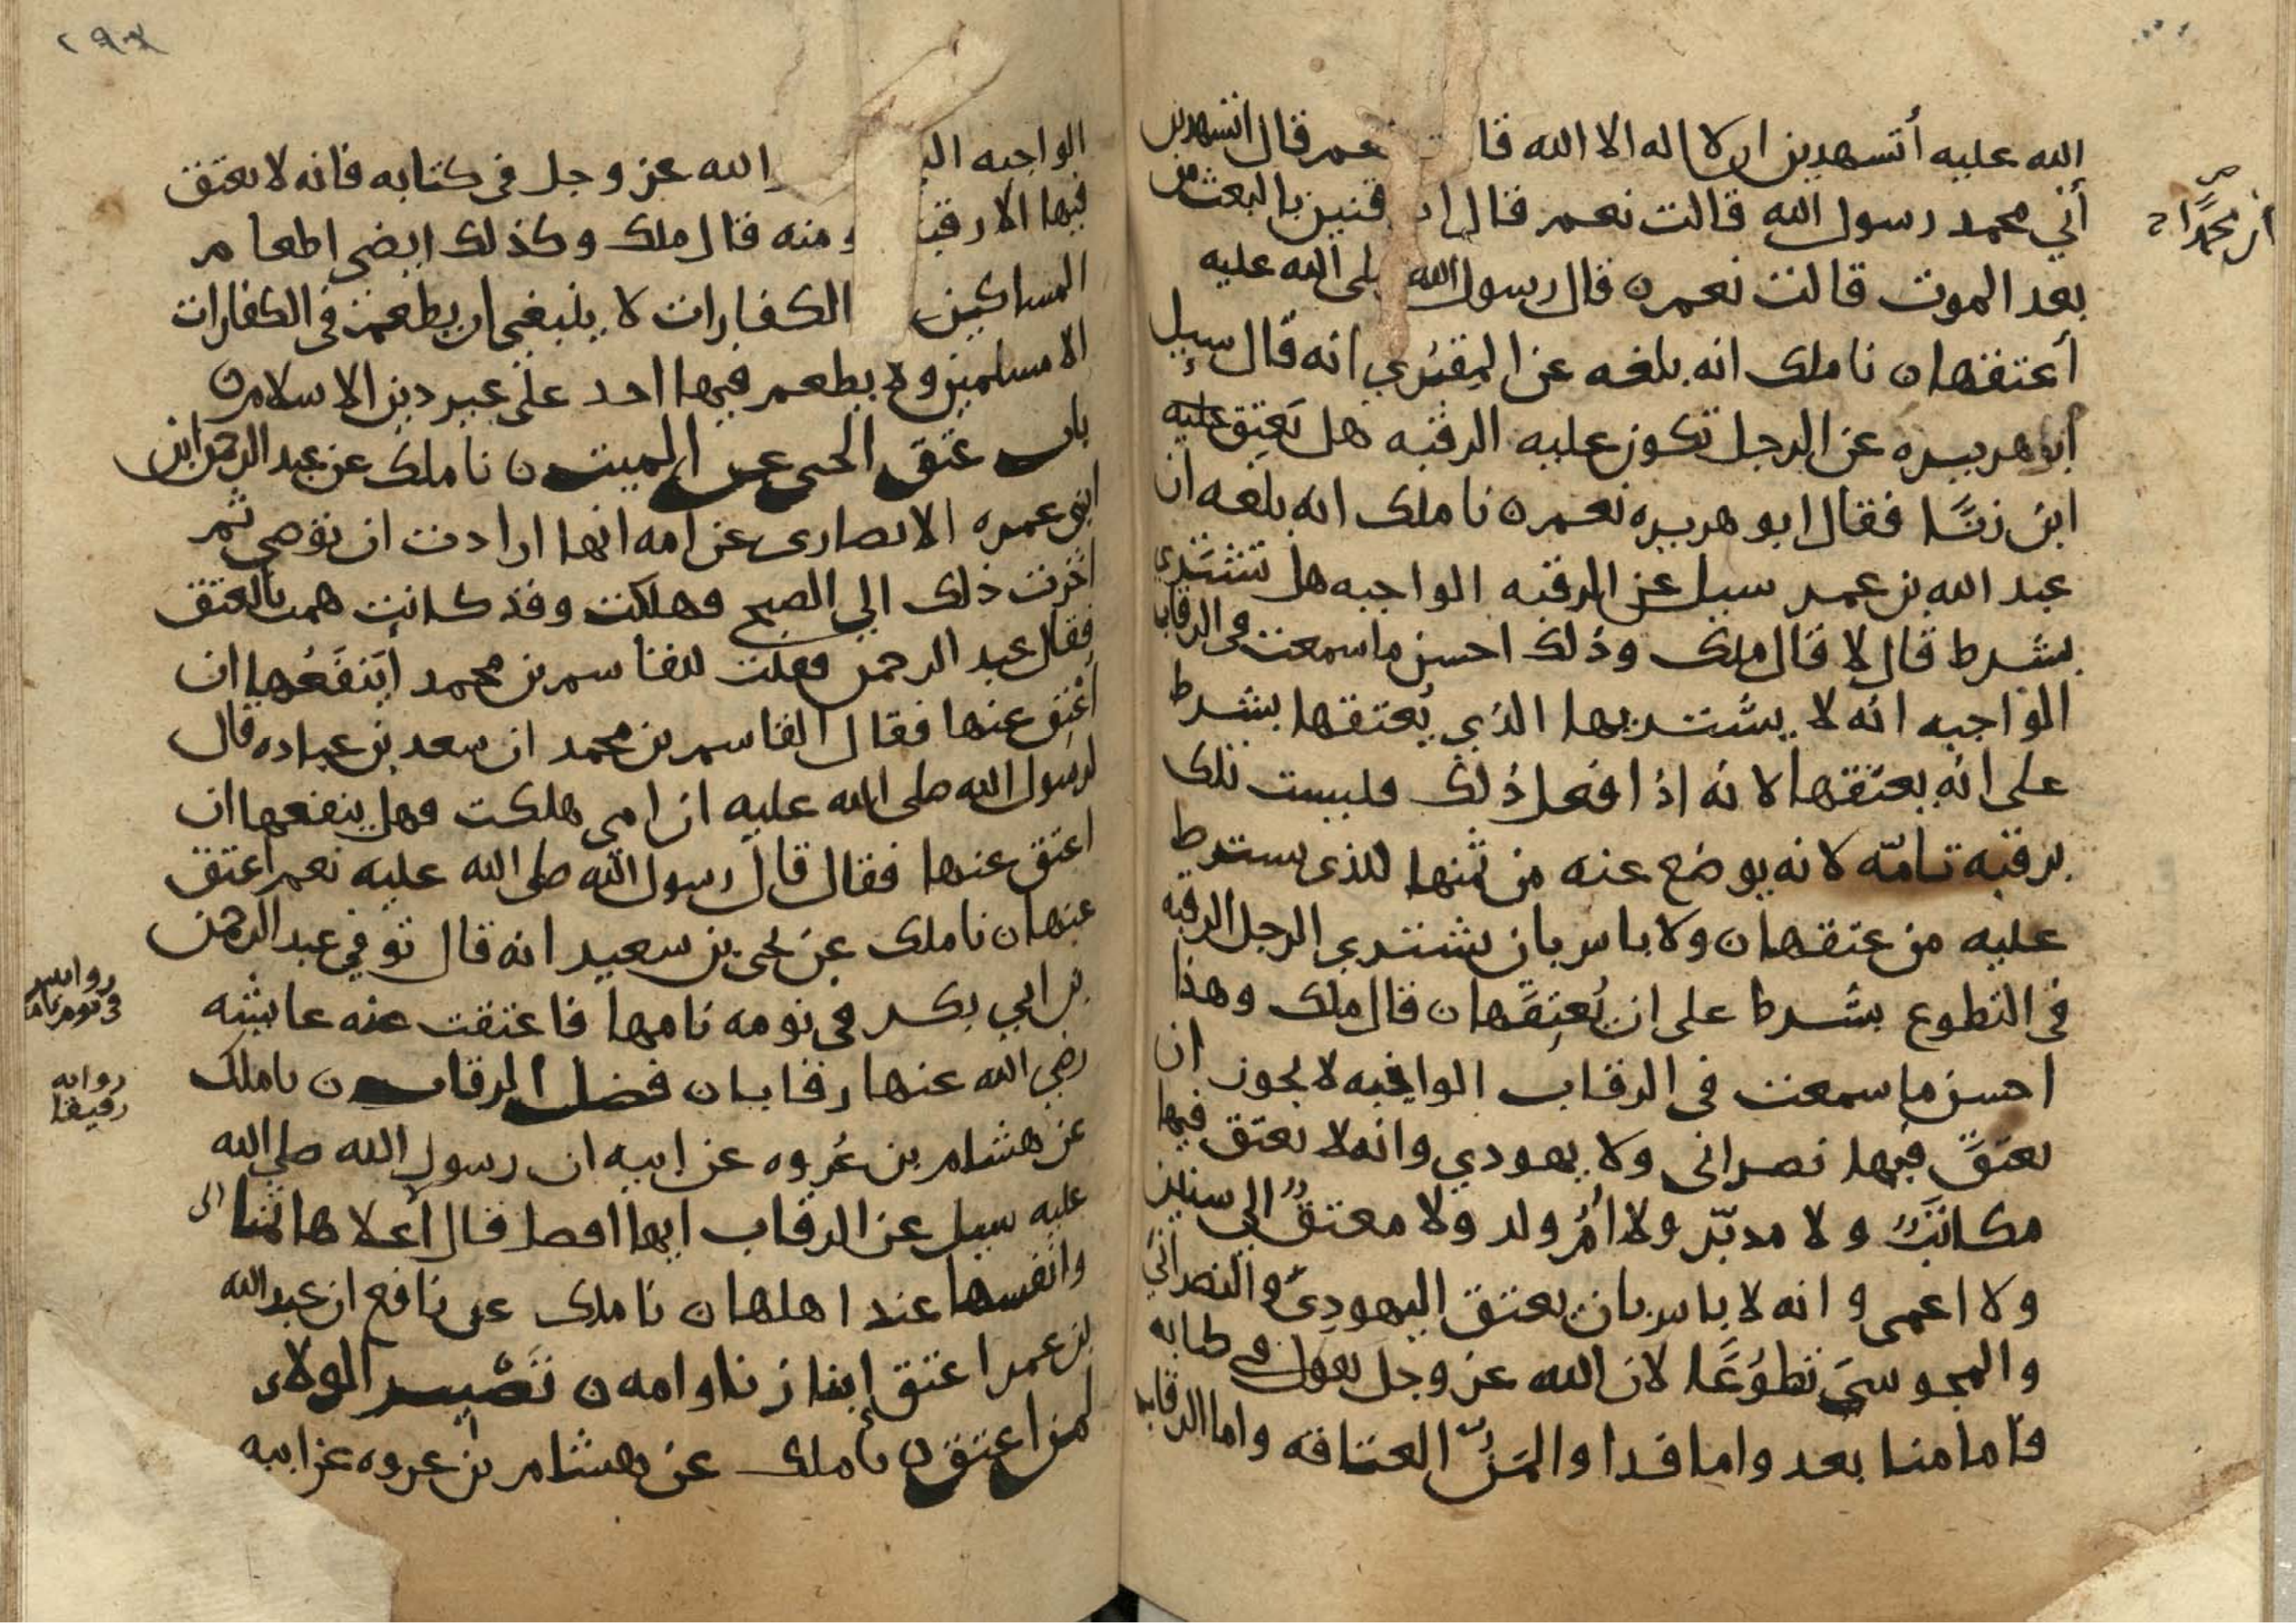 الله عليه أتشهدين ان لا اله الا الله قا نعم قال اتشهدين
أني محمد رسول الله قالت نعم قال ا قنين بالبعث من
بعد الموت قالت نعم ه قال رسول الله لى الله عليه
أعتقها ه نا ملك انه بلغه عن المقبُري انه قال سيل
أبو هريره عن الرجل تكون عليه الرقبه هل يَعتِق عليه
ابن زنًا فقال ابو هريره نعم ه نا ملك انه بلغه ان
عبد الله بن عمر سيل عن الرقبه الواجبه هل تشترى
بشرط قال لا قال ملك وذلك احسن ما سمعت في الرقاب
الواجبه انه لا يشتريها الذي يُعتقها بشرط
على انه يعتقها لانه اذا فعل ذلك فليست تلك
برقبه تامّه لانه يوضع عنه من ثمنها للذى يشترط
عليه من عتقها ه ولا باس بان يشتري الرجل الرقبه
في التطوع بشرط على ان يُعتِقَها ه قال ملك وهذا
احسن ما سمعت في الرقاب الواجبه لا يجوز ان
يعتقَ فيها نصرانى ولا يهودي وانه لا يعتق فيها
مكاتبٌ ولا مدبّر ولا أمُّ ولد ولا معتقٌ الى سنين
ولا اعمى و انه لا باس بان يعتق اليهوديّ والنصرانيّ
والمجوسيَ تطوُعًا لان الله عز وجل يقول في كتابه
فاما منا بعد واما فدا والمَنُّ العتاقه واما الرقاب
أن محمدًا
الواجبه ال الله عز وجل في كتابه فانه لا يعتق
فيها الا رقبه منه قال ملك وكذلك ايضى اطعام
المساكين الكفارات لا ينبغي ان يطعم في الكفارات
الا مسلمين ولا يطعم فيها احد على غير دين الاسلام ه
باب عتق الحي عن الميت ه نا ملك عن عبد الرحمن ابن
ابى عمره الانصارى عن امه انها ارادت ان توصي ثم
اخرت ذلك الي الصبح فهلكت وقد كانت همت بالعتق
فقال عبد الرحمن فقلت للقاسم بن محمد أينفَعُها ان
أعتق عنها فقال القاسم بن محمد ان سعد بن عباده قال
لرسول الله صلى الله عليه ان امي هلكت فهل ينفعها ان
اعتق عنها فقال قال رسول الله صلى الله عليه نعم اعتق
عنها ه نا ملك عن يحيى بن سعيد انه قال توفي عبد الرحمن
بن ابي بكر في نومه نامها فاعتقت عنه عايشه
رضي الله عنها رقابا ه فضل الرقاب ه نا ملك
عن هشام بن عُروه عن ابيه ان رسول الله صلى الله
عليه سيل عن الرقاب ايها افضل قال أعلاها ثمنا
وانفسها عند اهلها ه نا ملك عن نافع ان عبد الله
بن عمر اعتق إبنا زنا وامه ه تَصْيير الولاء
لمن اعتق ه نا ملك عن هشام بن عروه عن ابيه
روايه
رقيقا